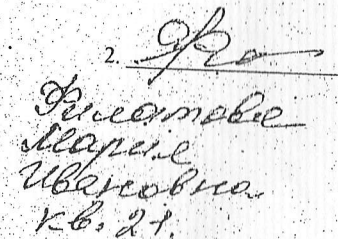 2.
Филатова
Мария
Ивановна.
кв. 21.